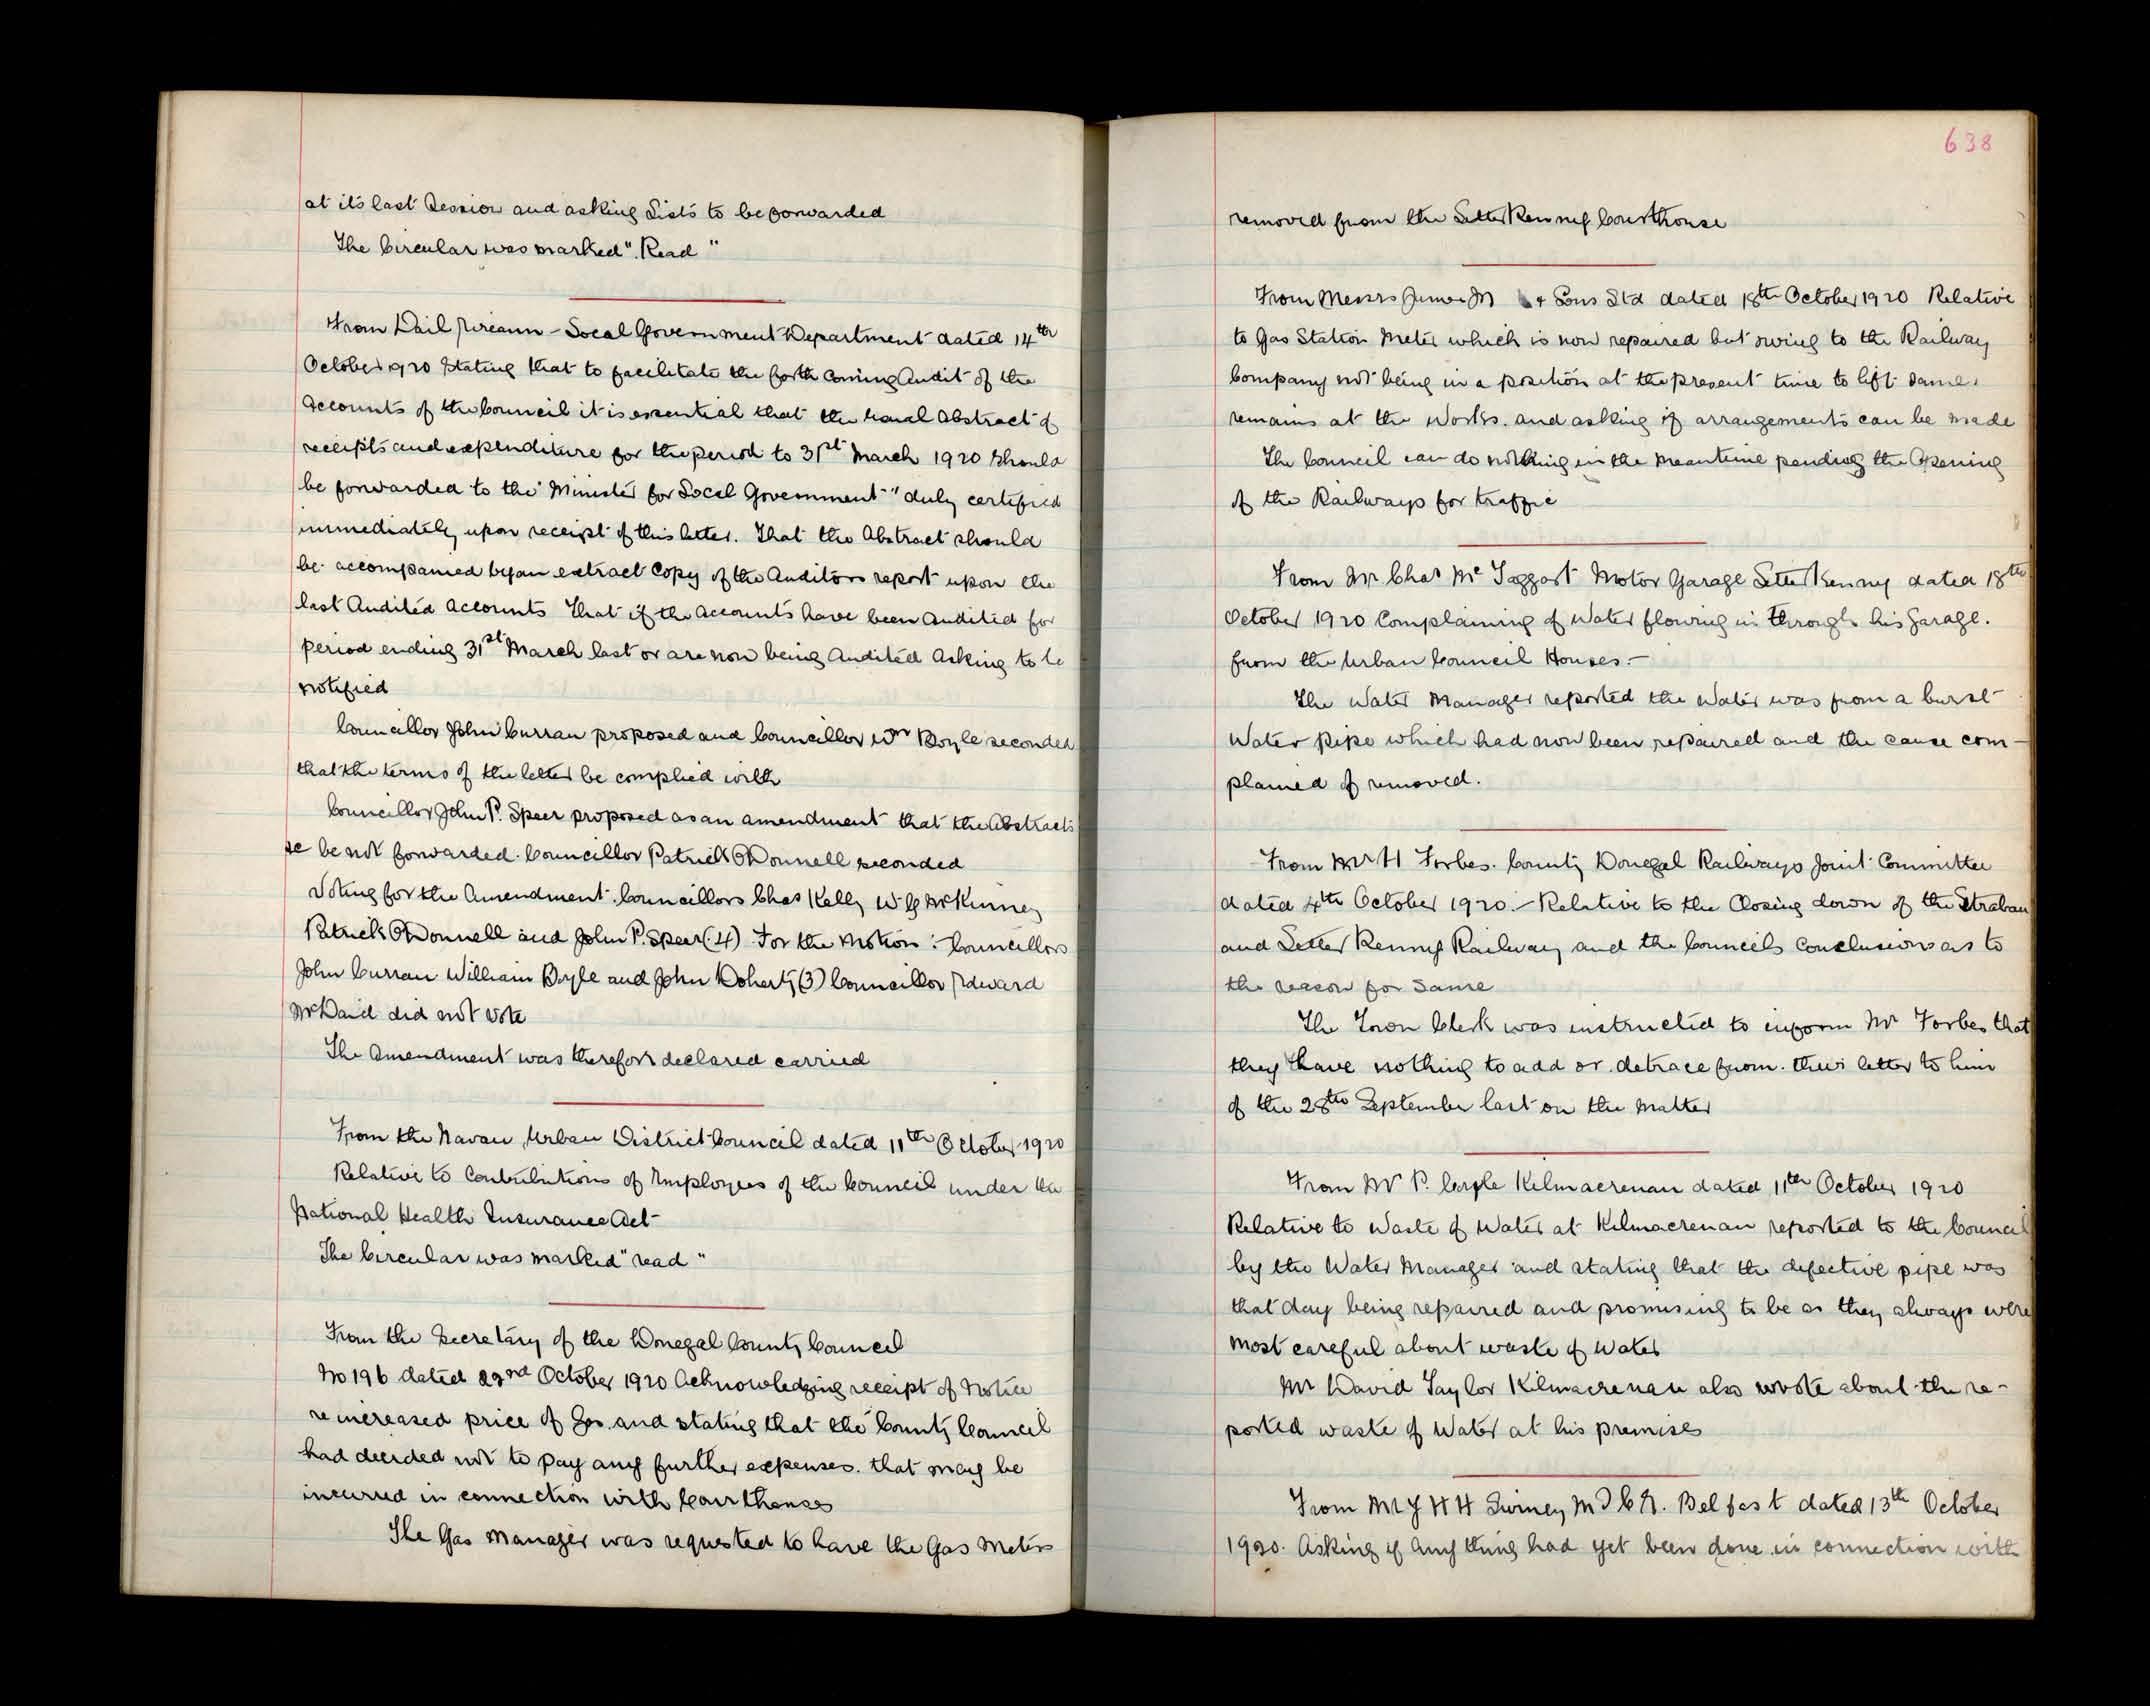 at its last Session and asking Lists to be forwarded
The Circular was marked "Read"
From Dail Eireann - Local Government Department dated 14th
October 1920 Stating that to facilitate the forth coming Audit of the
Accounts of the Council it is essential that the usual Abstract of
receipts and expenditure for the period to 31st March 1920 should
be forwarded to the "Minister for Local Government" duly certified
immediately upon receipt of this letter. That the Abstract should
be accompanied by an extract Copy of the Auditors report upon the
last Audited Accounts That if the Accounts have been Audited for
period ending 31st March last or are now being Audited Asking to be
notified
Councillor John Curran proposed and Councillor Wm Boyle seconded
that the terms of the letter be complied with
Councillor John P. Speer proposed as an amendment that the Abstracts
be not forwarded. Councillor Patrick O'Donnell seconded
Voting for the Amendment. Councillors Chas Kelly W G McKinney
Patrick O'Donnell and John P. Speer (4) For the Motion :- Councillors
John Curran William Boyle and John Doherty (3) Councillor Edward
McDaid did not vote
The Amendment was therefore declared carried
From the Navan Urban District Council dated 11th October 1920
Relative to Contributions of Employees of the Council under the
National Health Insurance Act -
The Circular was marked "read"
From the Secretary of the Donegal County Council
No 196 dated 22nd October 1920 Acknowledging receipt of Notice
re increased price of Gas and stating that the County Council
had decided not to pay any further expenses. that may be
incurred in connection with Courthouses
The Gas Manager was requested to have the Gas Meters
638
removed from the Letterkenny Courthouse
From Messrs James M & Sons Ltd dated 18th October 1920 Relative
to Gas Station Meter which is now repaired but owing to the Railway
Company not being in a position at the present time to lift same.
remains at the Works. and asking if arrangements can be made
The Council can do nothing in the meantime pending the Opening
of the Railways for traffic
From Mr Chas McTaggart Motor Garage Letterkenny dated 18th
October 1920 Complaining of Water flowing in through his Garage.
from the Urban Council Houses. -
The Water Manager reported the Water was from a burst
Water pipe which had now been repaired and the cause com-
plained of removed.
From Mr H Forbes. County Donegal Railways Joint Committee
dated 4th October 1920. - Relative to the Closing down of the Straban
and Letterkenny Railway and the Councils Conclusion as to
the reason for Same
The Town Clerk was instructed to inform Mr Forbes that
they have nothing to add or detrace from. their letter to him
of the 28th September last on the Matter
From Mr P. Coyle Kilmacrenan dated 11th October 1920
Relative to Waste of Water at Kilmacrenan reported to the Council
by the Water Manager and stating that the defective pipe was
that day being repaired and promising to be as they always were
most careful about waste of Water
Mr David Taylor Kilmacrenan also wrote about the re-
ported waste of Water at his premises
From Mr J H H Swiney M I C E. Belfast dated 13th October
1920. Asking if Any thing had yet been done in connection with